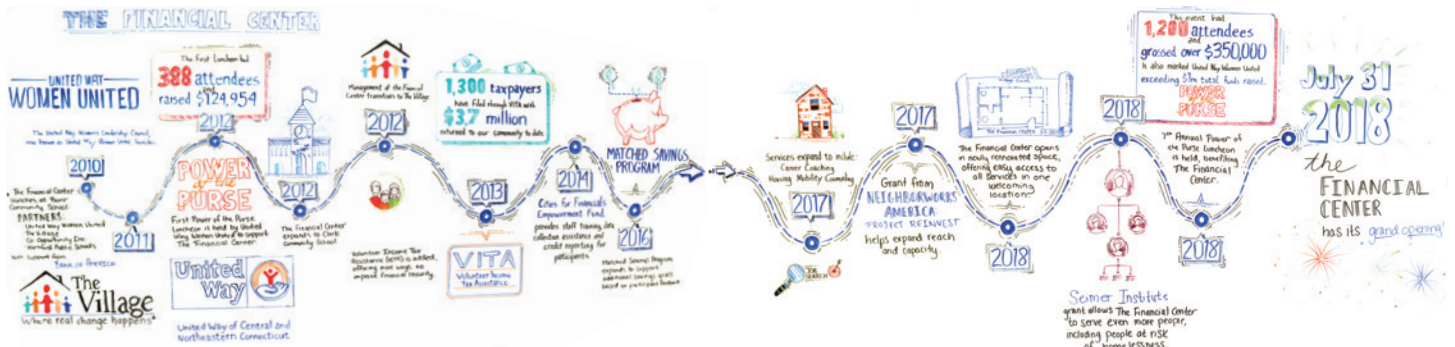 THE FINANCIAL CENTER
UNITED WAY
WOMEN UNITED
The United Way Women's Leadership Council,
now known as United Way Women United, launches
2010
The Financial Center
launches at Burr
Community School
PARTNERS:
United Way Women United
The Village
Co-Opportunity Inc.
Hartford Public Schools
With support from
BANK OF AMERICA
The
Village
Where real change happens
2011
The First Luncheon had
388 attendees
and
raised $124,954
2012
POWER
of the
PURSE
First Power of the Purse
Luncheon is held by United
Way Women United to support
The Financial Center.
United
Way
United Way of Central and
Northeastern Connecticut
2012
The Financial Center
expands to Clark
Community School
Management of the Financial
Center transitions to The Village
2012
Volunteer Income Tax
Assistance (VITA) is added,
offering more ways to
improve financial security.
1,300 taxpayers
have filed through VITA with
$3.7 million
returned to our community to date
2013
VITA
Volunteer Income
Tax Assistance
2014
Cities for Financial
Empowerment Fund
provides staff training, data
collection assistance and
credit reporting for
participants
MATCHED SAVINGS
PROGRAM
2016
Matched Savings Program
expands to support
additional savings goals
based on participant feedback
Services expand to include:
Career Coaching
Housing Mobility Counseling
2017
JOB
SEARCH
2017
Grant from
NEIGHBORWORKS
AMERICA
PROJECT REINVEST
helps expand reach
and capacity.
THE FINANCIAL CENTER
The Financial Center opens
in newly renovated space,
offering easy access to
all services in one
welcoming
location
2018
2018
Seimer Institute
grant allows The Financial Center
to serve even more people,
including people at risk
of homelessness.
This event had
1,200 attendees
and
grossed over $350,000
It also marked United Way Women United
exceeding $1m total funds raised.
POWER
of the
PURSE
7th Annual Power of
the Purse Luncheon
is held, benefiting
The Financial
Center.
2018
July 31
2018
the
FINANCIAL
CENTER
has its grand opening!